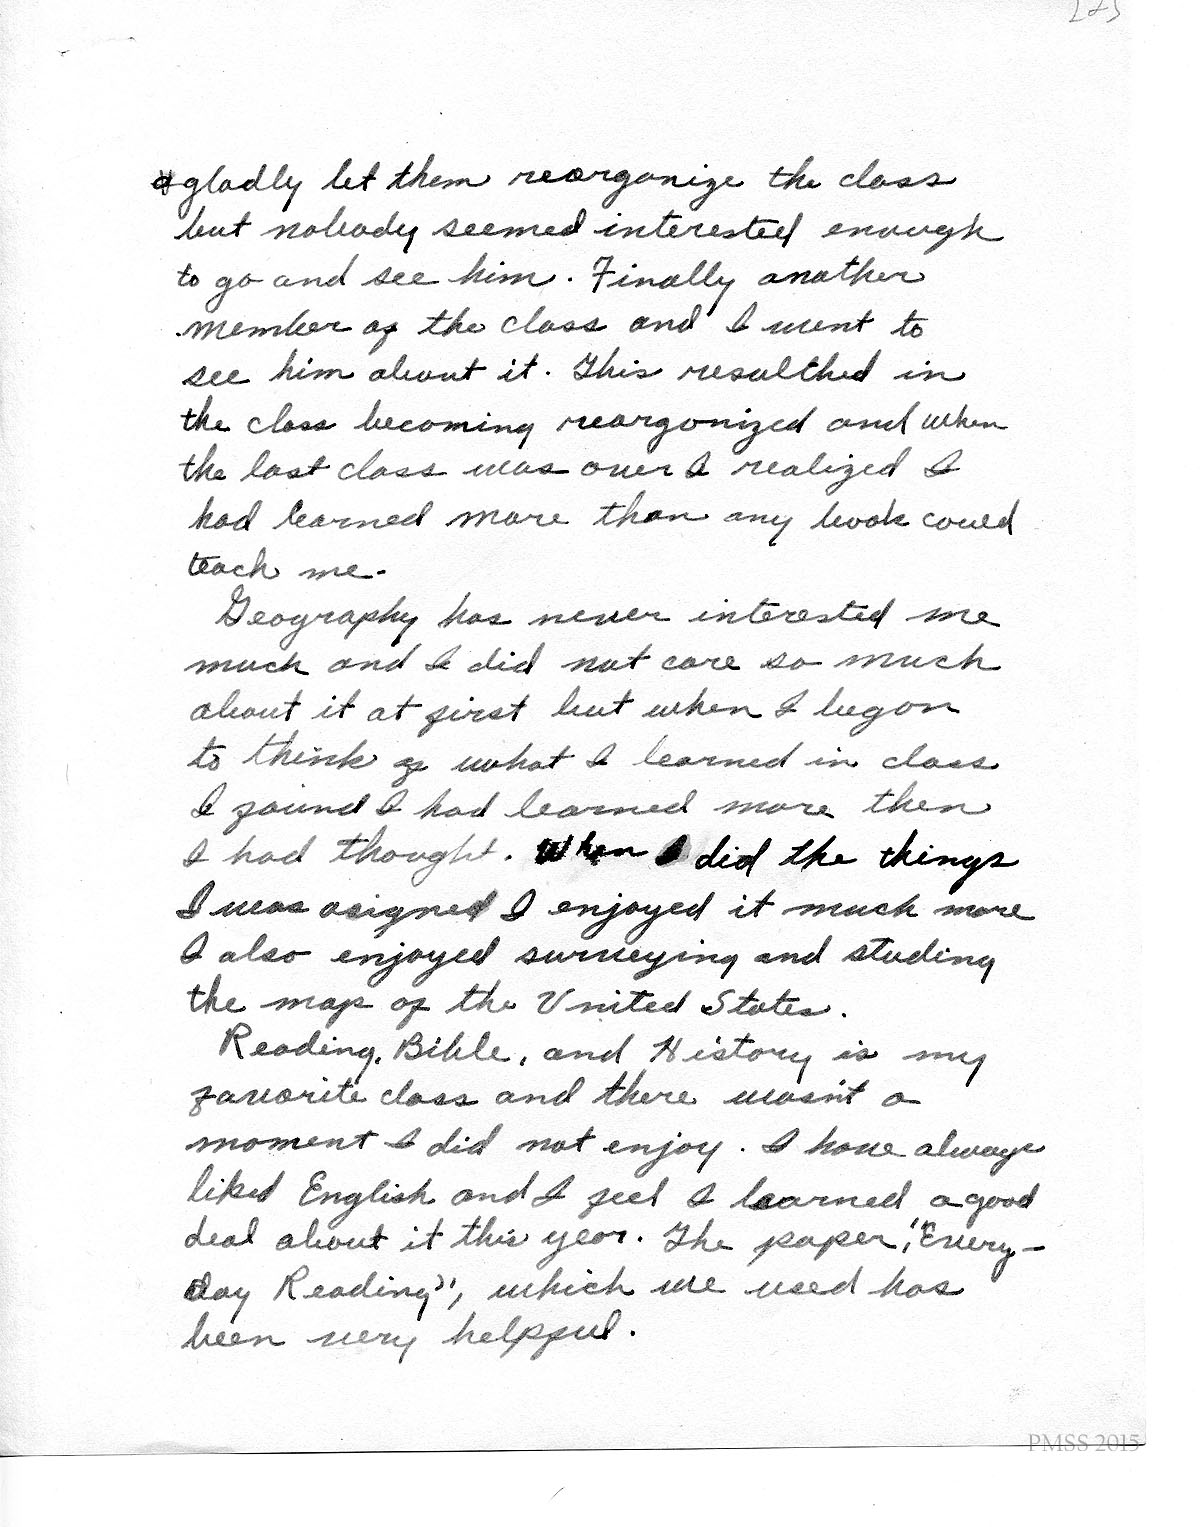 [2]
gladly let them reorganize the class
but nobody seemed interested enough
to go and see him. Finally another
member of the class and I went to
see him about it. This resulthed in
the class becoming reorgonized and when
the last class was over I realized I
had learned more than any book could
teach me.
Geography has never interested me
much and I did not care so much
about it at first but when I began
to think of what I learned in class
I found I had learned more then
I had thought. When I did the things
I was asigned I enjoyed it much more
I also enjoyed surveying and studing
the map of the United States.
Reading, Bible, and History is my
favorite class and there wasn't a
moment I did not enjoy. I have always
liked English and I feel I learned a good
deal about it this year. The paper, "Every-
day Reading", which we used has
been very helpful.
PMSS 2015